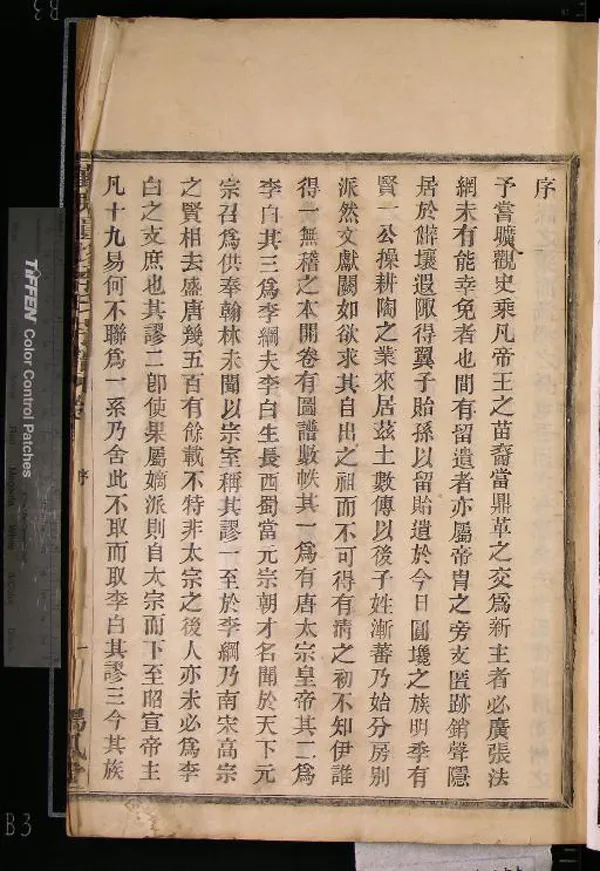 序
予嘗曠觀史乘凡帝王之苗裔當鼎革之交爲新主者必廣張法
網未有能幸免者也間有留遺者亦屬帝胄之旁支匿跡銷聲隱
居於僻壤遐陬得翼子貽孫以留貽遺於今日圓墝之族明季有
賢一公操耕陶之業來居茲土數傳以後子姓漸蕃乃始分房別
派然文獻闕如欲求其自出之祖而不可得有淸之初不知伊誰
得一無稽之本開卷有圖譜數帙其一爲有唐太宗皇帝其二爲
李白其三爲李綱夫李白生長西蜀當元宗朝才名聞於天下元
宗召爲供奉翰林未聞以宗室稱其謬一至於李綱乃南宋高宗
之賢相去盛唐幾五百有餘載不特非太宗之後人亦未必爲李
白之支庶也其謬二卽使果屬嫡派則自太宗而下至昭宣帝主
凡十九易何不聯爲一系乃舍此不取而取李白其謬三今其族
序
一
TIFFEN Color Control Patches
B3
B3